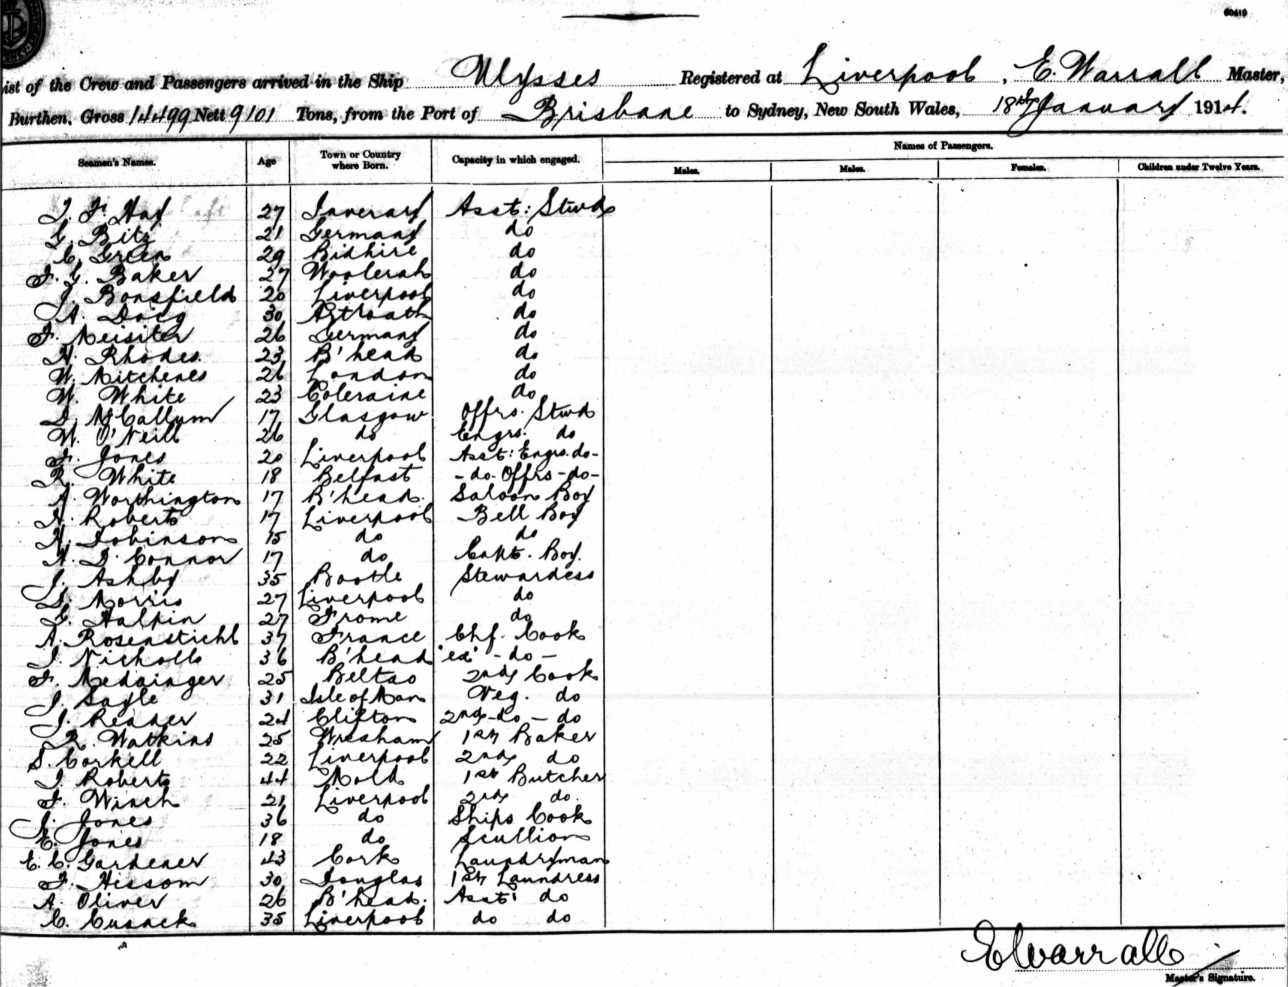 60419
ist of the Crew and Passengers arrived in the Ship Ulysses Registered at Liverpool, E. Warrall Master,
Burthen, Gross 14499 Nett 9101 Tons, from the Port of Brisbane to Sydney, New South Wales, 18th January 1914.
Seamen's Names. Age Town or Country where Born. Capacity in which engaged. Names of Passengers.
Males. Males. Females. Children under Twelve Years.
27 Asst: Stwd
G. Bitz 21 Germany do
C. Green 29 do
F. G. Baker 27 Woolerah do
J. Bonsfield 20 Liverpool do
A. 30 do
F. Meisiter 26 Germany do
H. Rhodes. 23 B'head do
W. Mitchenes 26 London do
W. White 23 Coleraine do
D. McCallum 17 Glasgow Offrs. Stwd
W. O'Neill 26 do Engrs. do
F. Jones 20 Liverpool Asst: Engrs. do-
R. White 18 Belfast -do- Offrs -do-
A. Worthington 17 B'head. Saloon Boy
H. Roberts 17 Liverpool Bell Boy
15 do do
17 do Capt. Boy.
J. Ashby 35 Bootle Stewardess
S. Morris 27 Liverpool do
G. Halpin 27 Frome do
A. Rosenstiehl 37 France Chf. Cook
J. Nicholls 36 B'head -do-
F. 25 2nd Cook
J. 31 Isle of Man Veg. do
J. 24 Clifton 2nd -do- do
R. Watkins 25 1st Baker
S. Corkell 22 Liverpool 2nd do
J. Roberts 44 Mold 1st Butcher
F. Winch 21 Liverpool 2nd do.
J. Jones 36 do Ships Cook
C. Jones 18 do Scullion
E. C. Gardener 43 Cork Laundryman
F. Hissom 30 Douglas 1st Laundress
A. Oliver 26 B'head. Asst do
C. Cusack 35 Liverpool do do
E Warrall
Master's Signature.